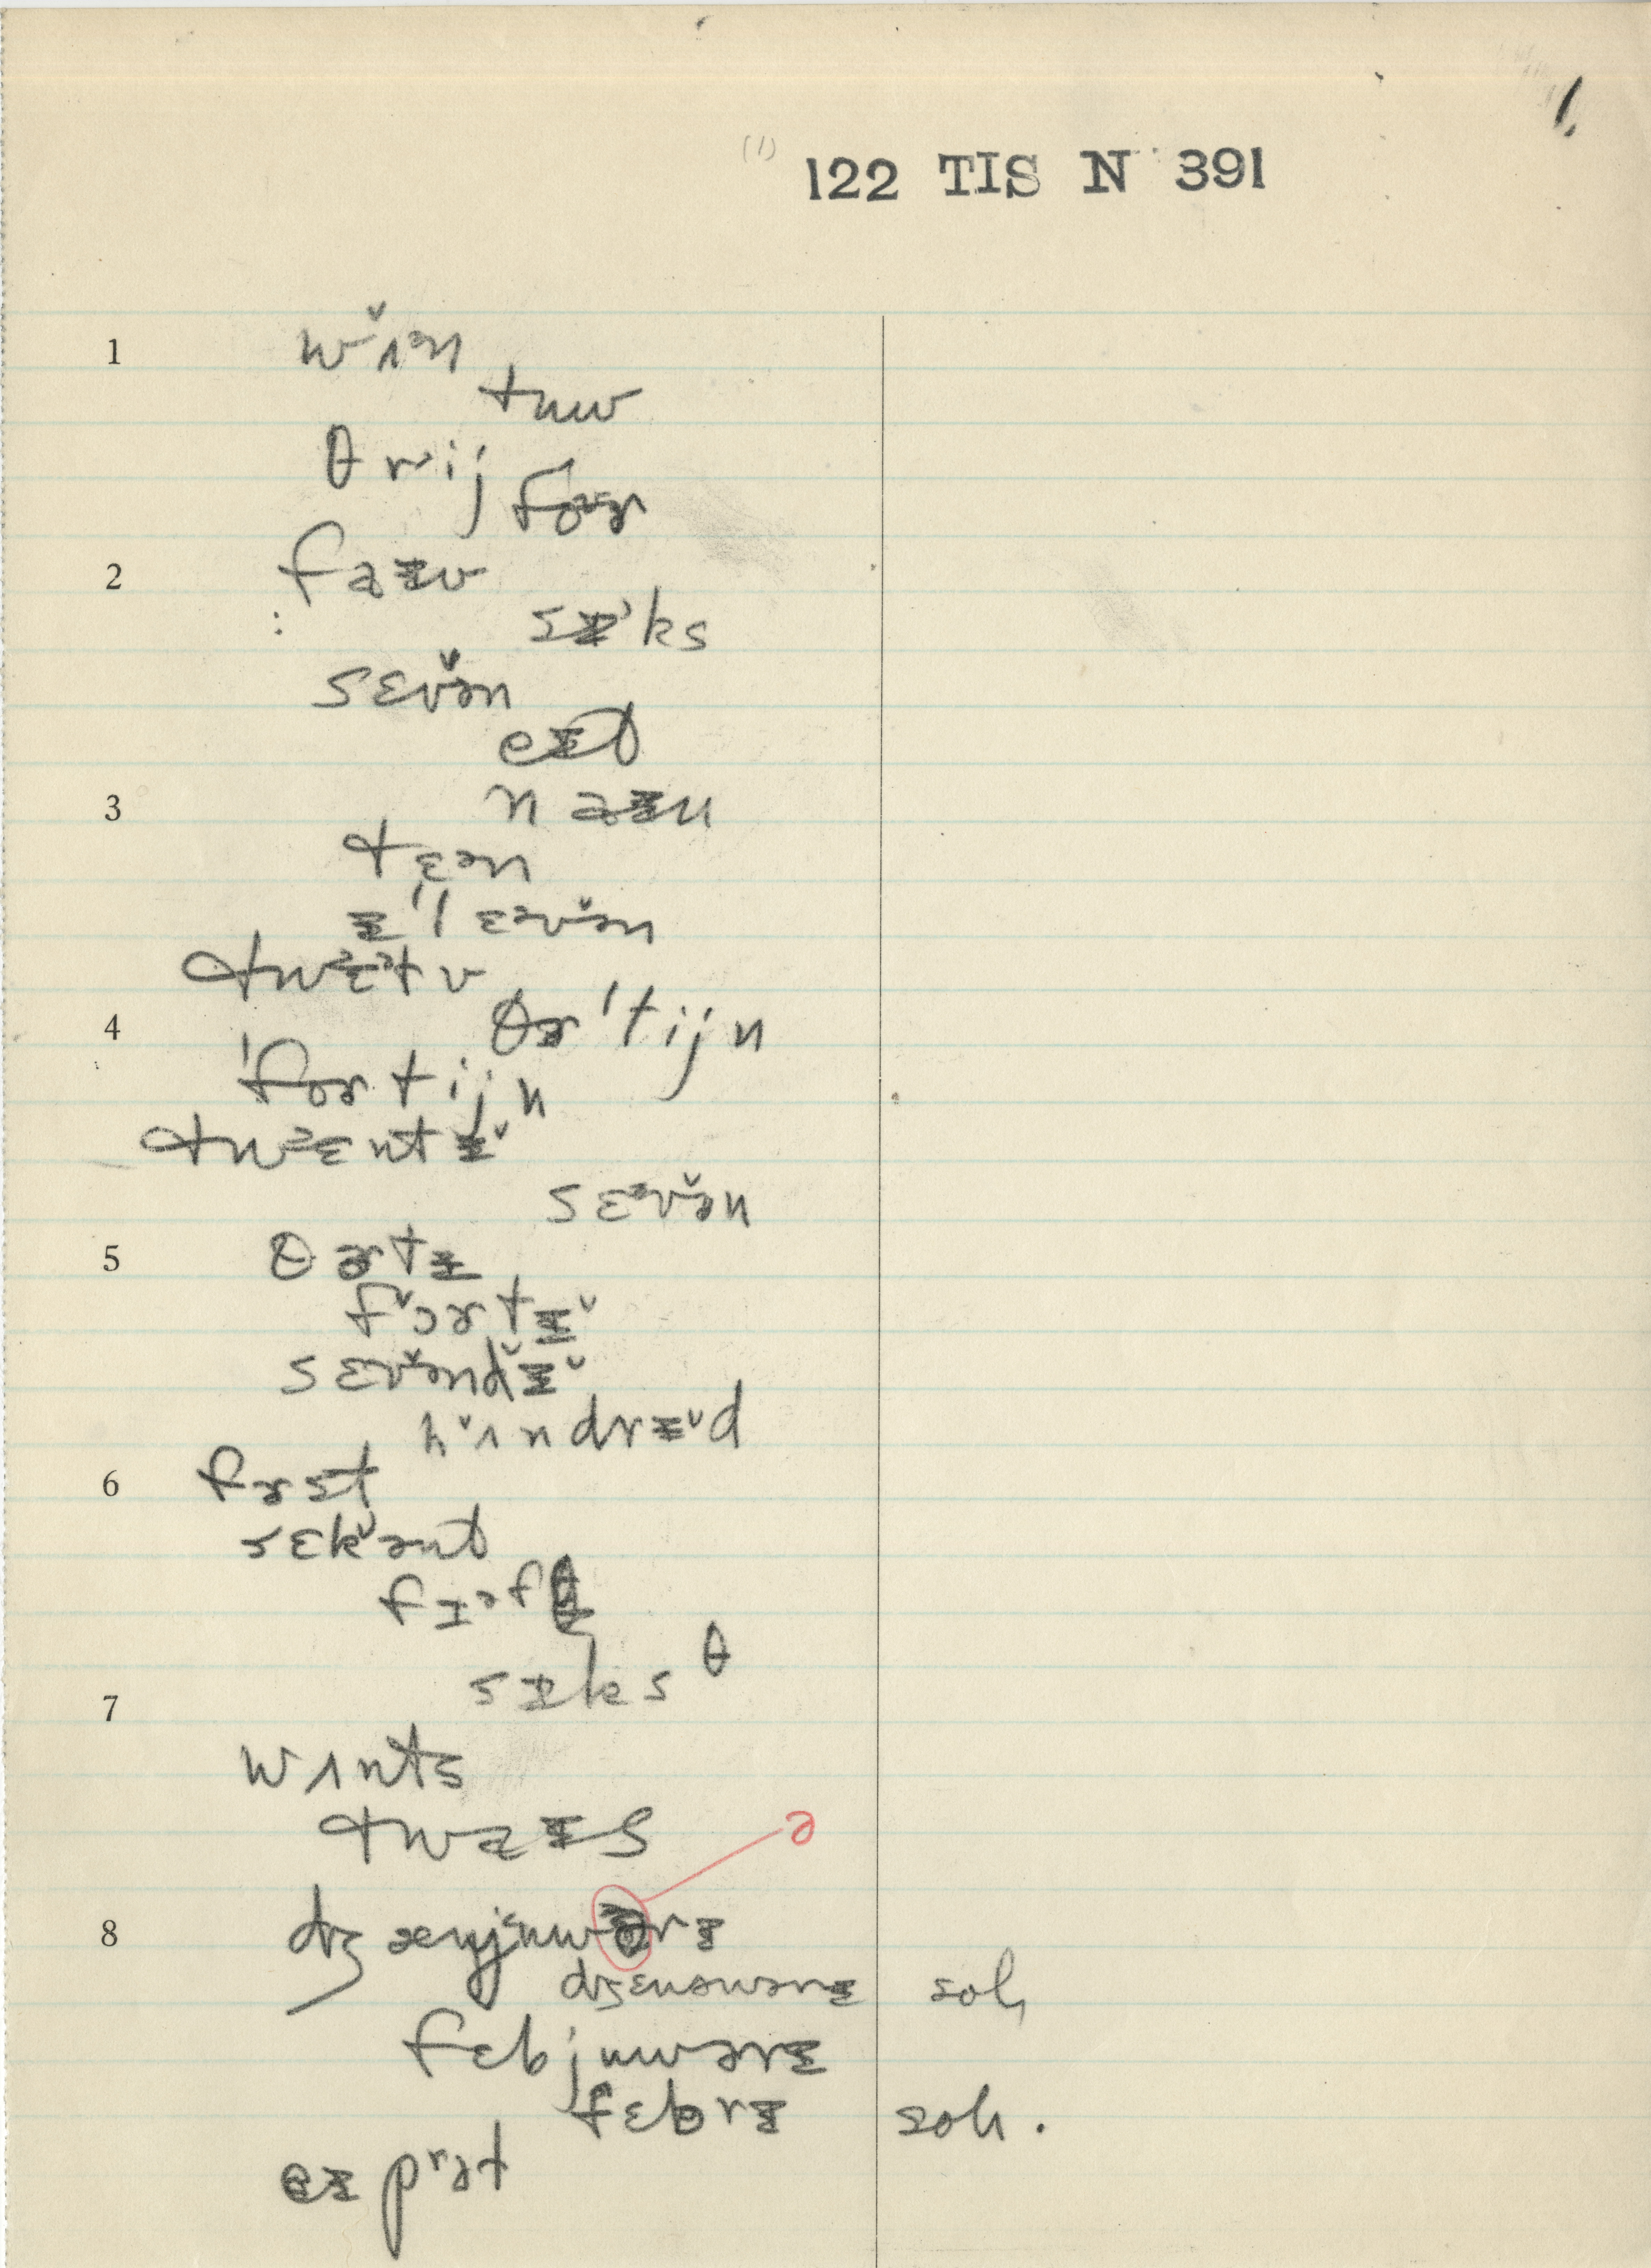 1.
(1) 122 TIS N 391
1 wʌ̌ᵊn
tuw
θrij
foᵊɚ
2 faɪv
sɪᵊks
sɛvə̌n
eɪt
3 naɪn
tɛᵊn
ɪˈlɛᵊvə̌n
4 θɚˈtijn
ˈfortijn
twᵊɛntɪˇ
sɛᵊvə̌n
5 θɚtɪ
fˇɔrtɪˇ
sɛvə̌ndˇɪˇ
hˇʌndrɪˇd
6 fɚst
sɛkˇənt
fɪᵊfθ
sɪksθ
7
wʌnts
twaɪs
ə
8 dʒænjuwərɪ
dʒɛnəwərɪ soh
fɛbjuwərɪ
fɛbrɪ soh.
eɪprət